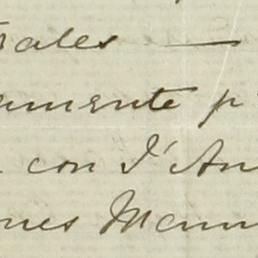 rales —
amente p
con d'An
ones Mann